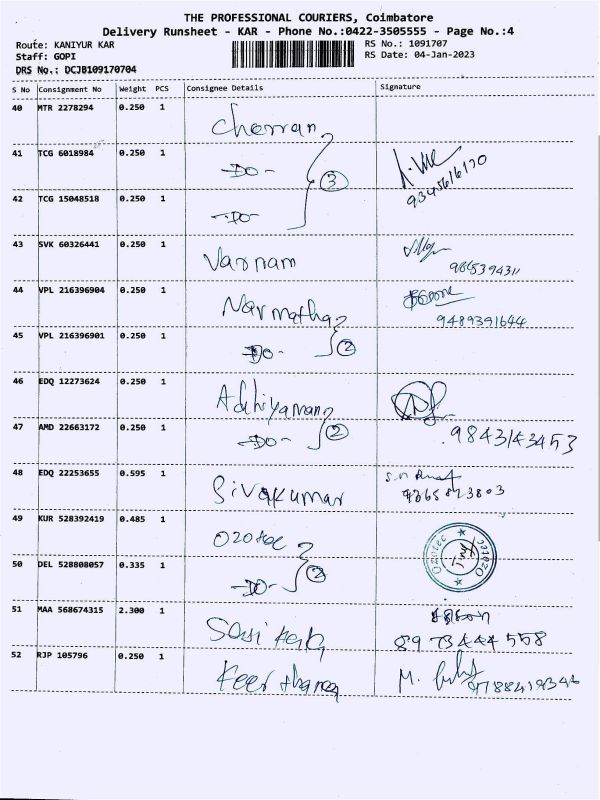 THE PROFESSIONAL COURIERS, Coimbatore
Delivery Runsheet - KAR - Phone No.:0422-3505555 - Page No.:4
Route: KANIYUR KAR
RS No.: 1091707
Staff: GOPI
RS Date: 04-Jan-2023
DRS No.: DCJB109170704
S No Consignment No Weight PCS Consignee Details Signature
40 MTR 2278294 0.250 1 Cherran
41 TCG 6018984 0.250 1 -DO- 3 9345616170
42 TCG 15048518 0.250 1 -DO-
43 SVK 60326441 0.250 1 Varnam 986539431
44 VPL 216396904 0.250 1 Narmatha 9489391644
45 VPL 216396901 0.250 1 -DO- 2
46 EDQ 12273624 0.250 1 Adhiyaman
47 AMD 22663172 0.250 1 -DO- 2 9843143453
48 EDQ 22253655 0.595 1 Sivakumar
49 KUR 528392419 0.485 1 Ozotec Ozotec Ozotec
50 DEL 528808057 0.335 1 -DO- 2
51 MAA 568674315 2.300 1 8973444558
52 RJP 105796 0.250 1 Keerthana M.